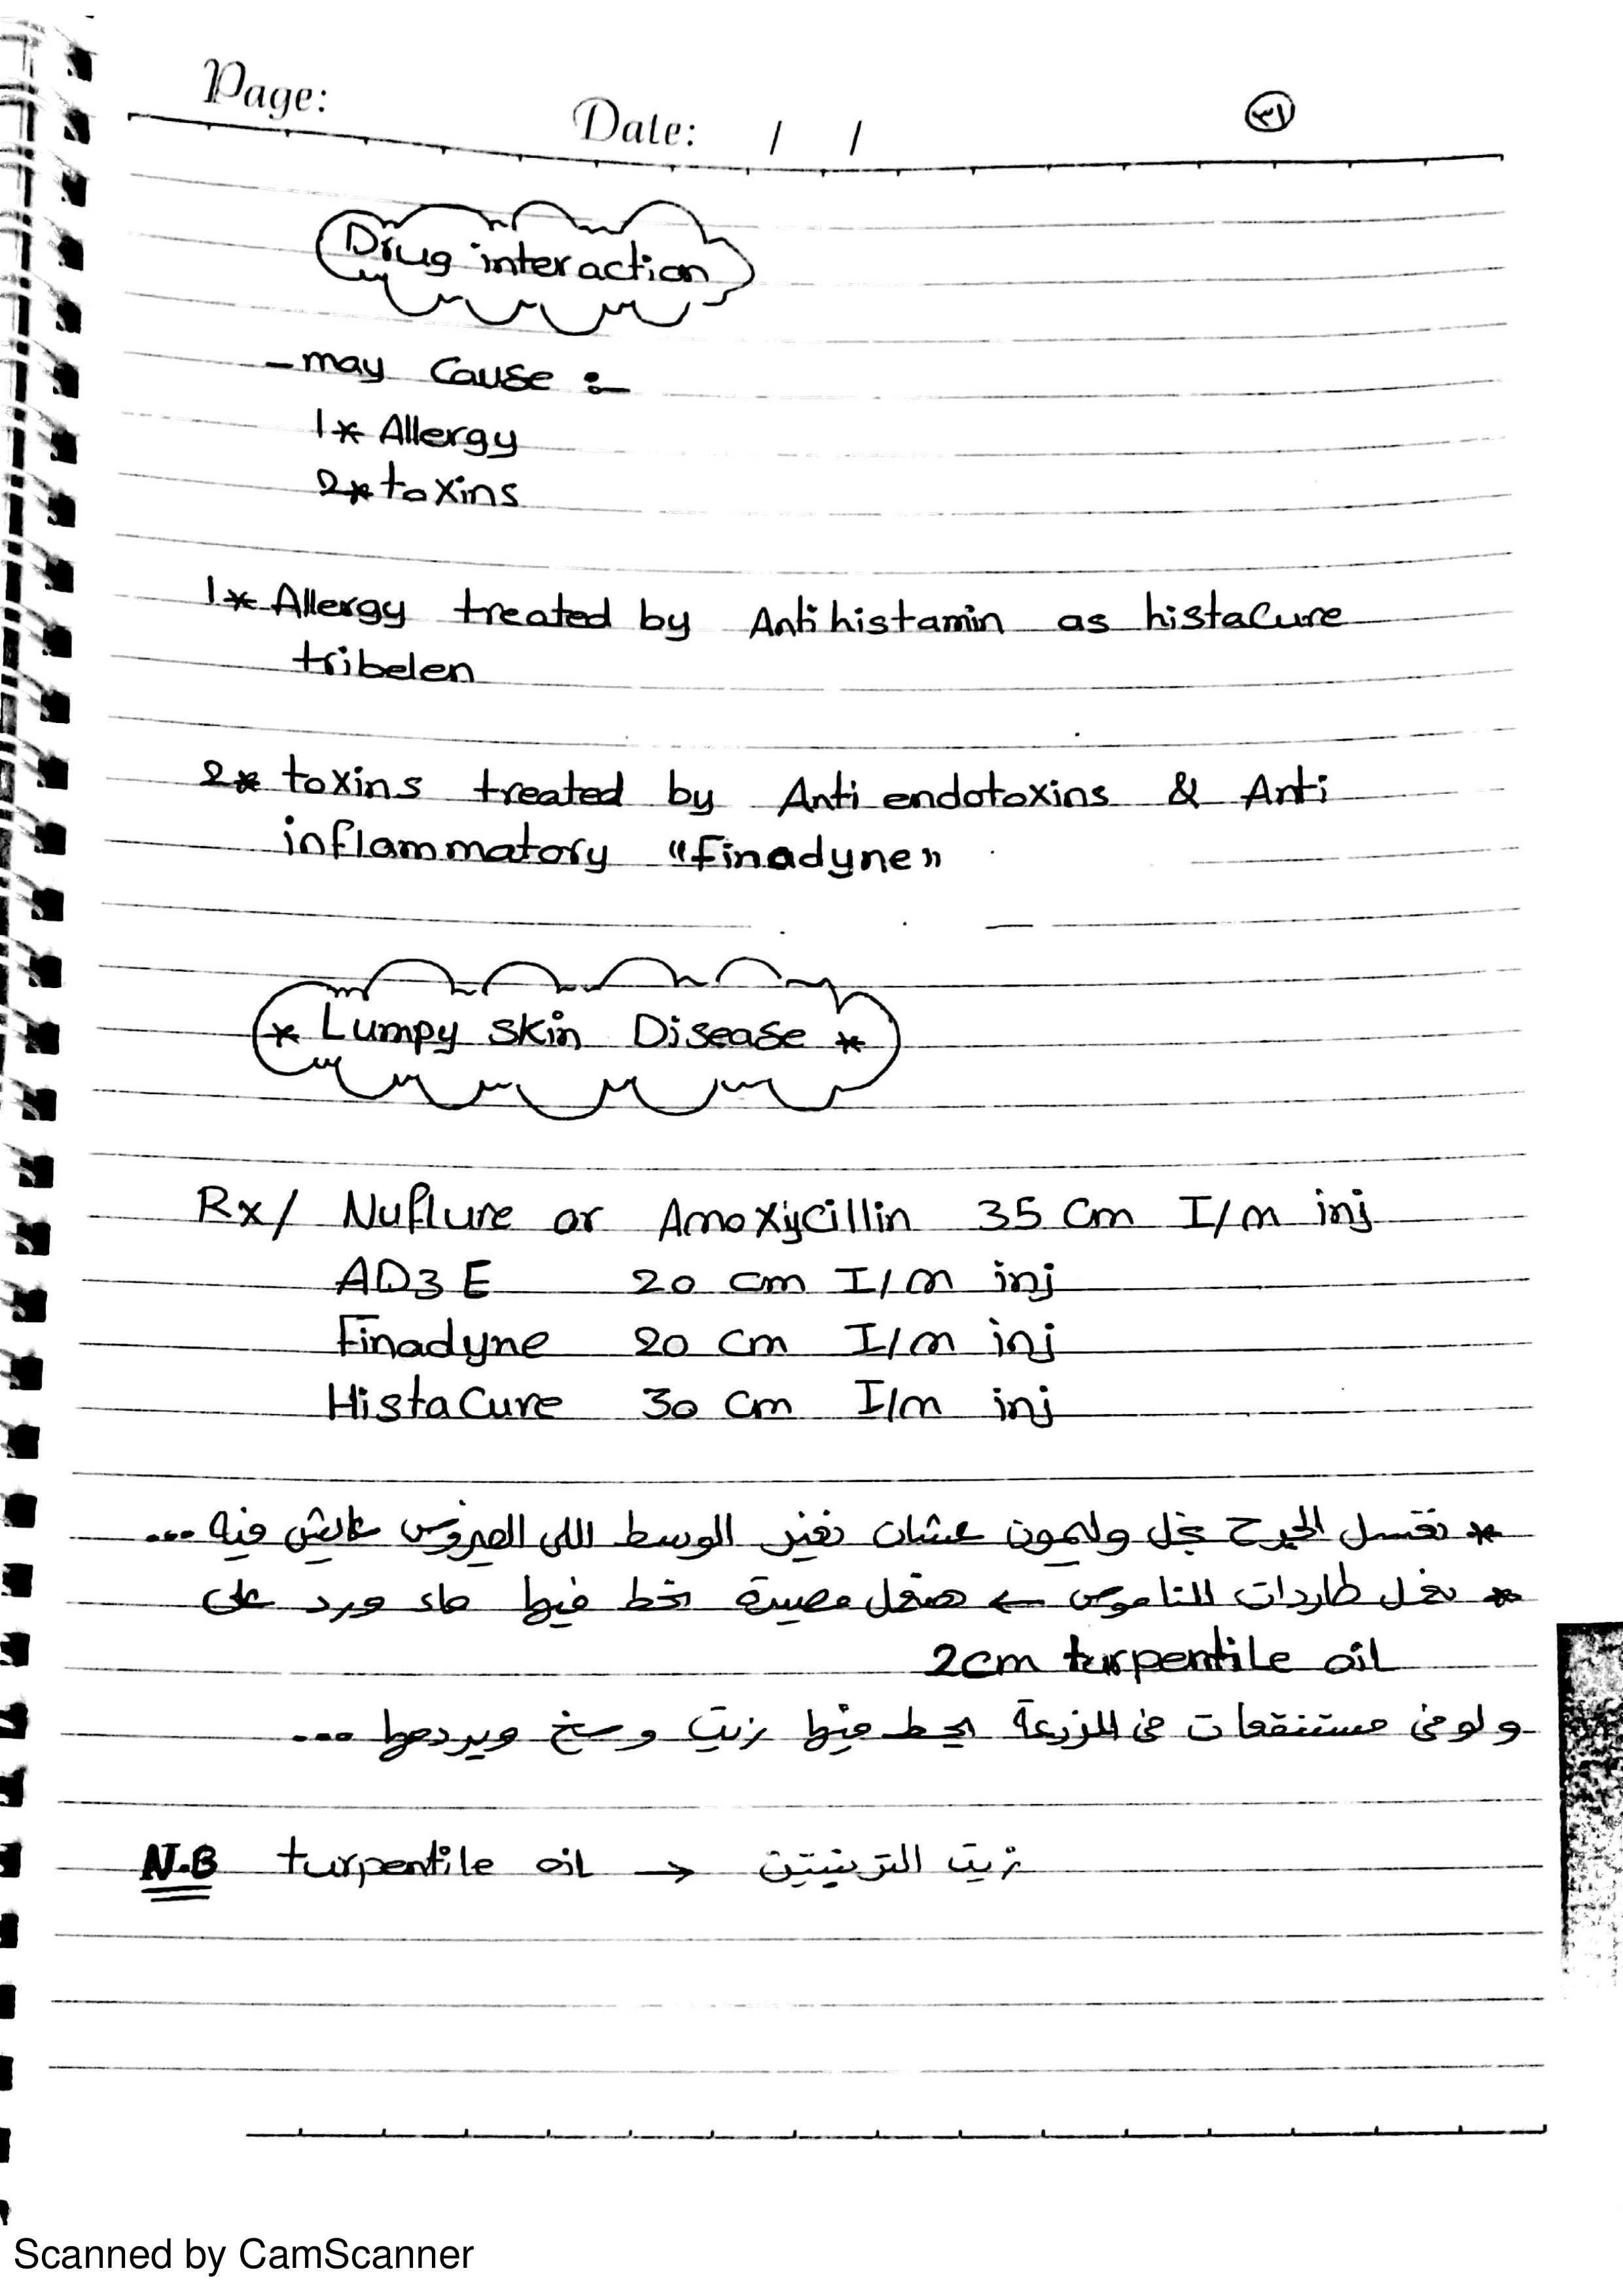 Page:
Date: / /
٣١
Drug interaction
- may cause :-
1* Allergy
2* toxins
1* Allergy treated by Antihistamin as histaCure
tribelen
2* toxins treated by Anti endotoxins & Anti
inflammatory "Finadyne"
* Lumpy skin Disease *
Rx/ Nuflure or Amoxycillin 35 Cm I/m inj
AD3E 20 cm I/m inj
Finadyne 20 cm I/m inj
HistaCure 30 cm I/m inj
* نغسل الجرح بخل وليمون عشان نغير الوسط اللى الفيروس عايش فيه ...
* نعمل طاردات للناموس ← هنعمل مصيدة نحط فيها ماء ورد على
2cm turpentile oil
ولو فى مستنقعات فى المزرعة يحط فيها زيت وسخ ويردمها ...
N.B turpentile oil → زيت التربنتين
Scanned by CamScanner